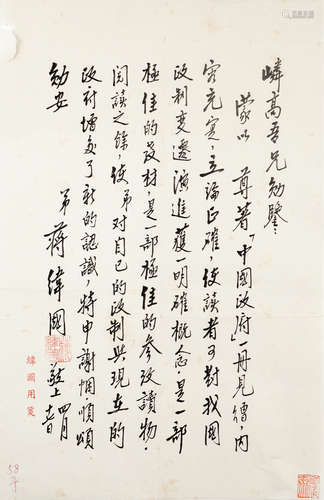 嶙高吾兄勛鑒：
蒙以 尊著「中國政府」一冊見贈，內
容充實，立論正確，使讀者可對我國
政制變遷演進獲一明確概念，是一部
極佳的教材，是一部極佳的參攷讀物。
閱讀之餘，使弟對自己的政制與現在的
政府增多了新的認識，特申謝悃，順頌
勛安
弟 蔣緯國 敬上 四月
緯國用箋